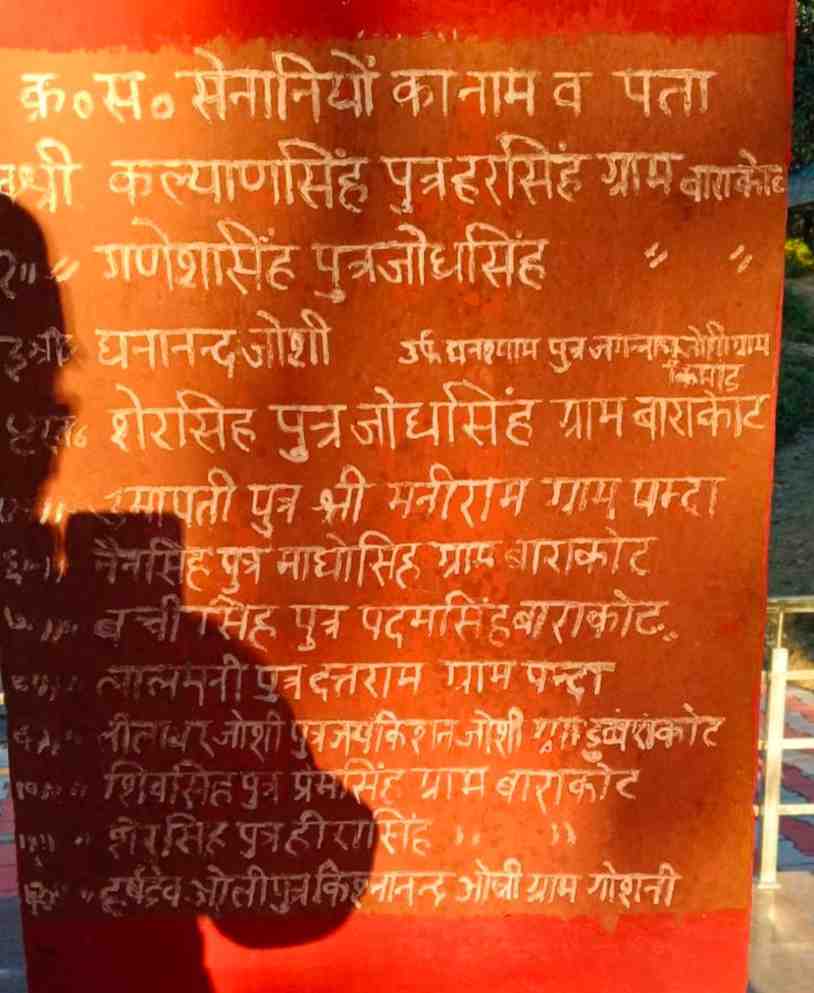 क्र०स० सेनानियों का नाम व पता
श्री कल्याणसिंह पुत्र हरसिंह ग्राम बाराकोट
२ 〃 〃 गणेशसिंह पुत्र जोधसिंह 〃 〃
३ श्री घनानन्द जोशी उर्फ घनश्याम पुत्र जगन्नाथ जोशी ग्राम
किमाड
४ शेरसिह पुत्र जोधसिंह ग्राम बाराकोट
पुत्र श्री मनीराम ग्राम पम्दा
६ 〃 नैनसिंह पुत्र माधोसिह ग्राम बाराकोट
७ 〃 बची सिंह पुत्र पदमसिंह बाराकोट
〃 लालमनी पुत्र दत्तराम ग्राम पन्दा
जोशी पुत्र जयकिशन जोशी बाराकोट
शिवसिह पुत्र प्रेमसिंह ग्राम बाराकोट
〃 शेरसिह पुत्र हीरासिंह 〃 〃
〃 हर्षदेव ओली पुत्र किश्नानन्द ओली ग्राम गोशनी